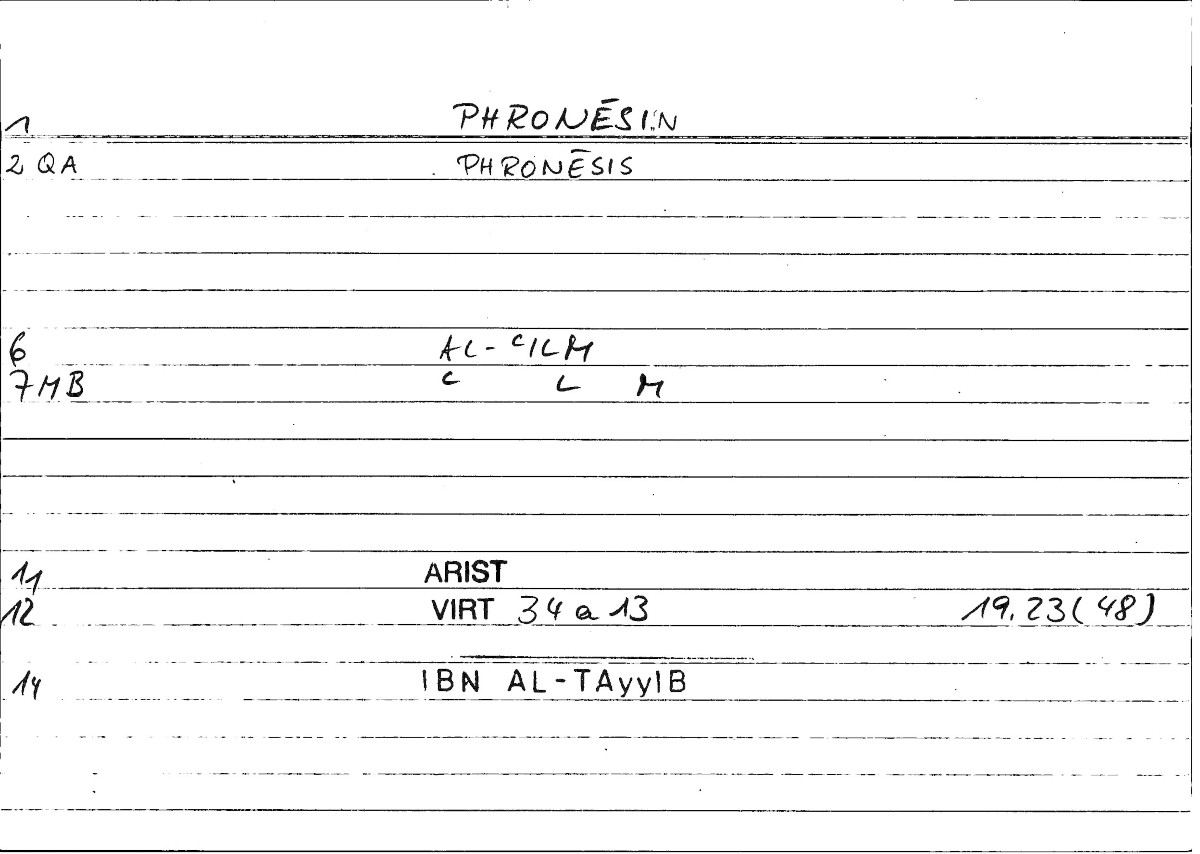 1 PHRONĒSIN
2 QA PHRONĒSIS
6 AL-ᶜILM
7 MB ᶜ L M
11 ARIST
12 VIRT 34 a 13 19.23(48)
14 IBN AL-TAyyIB